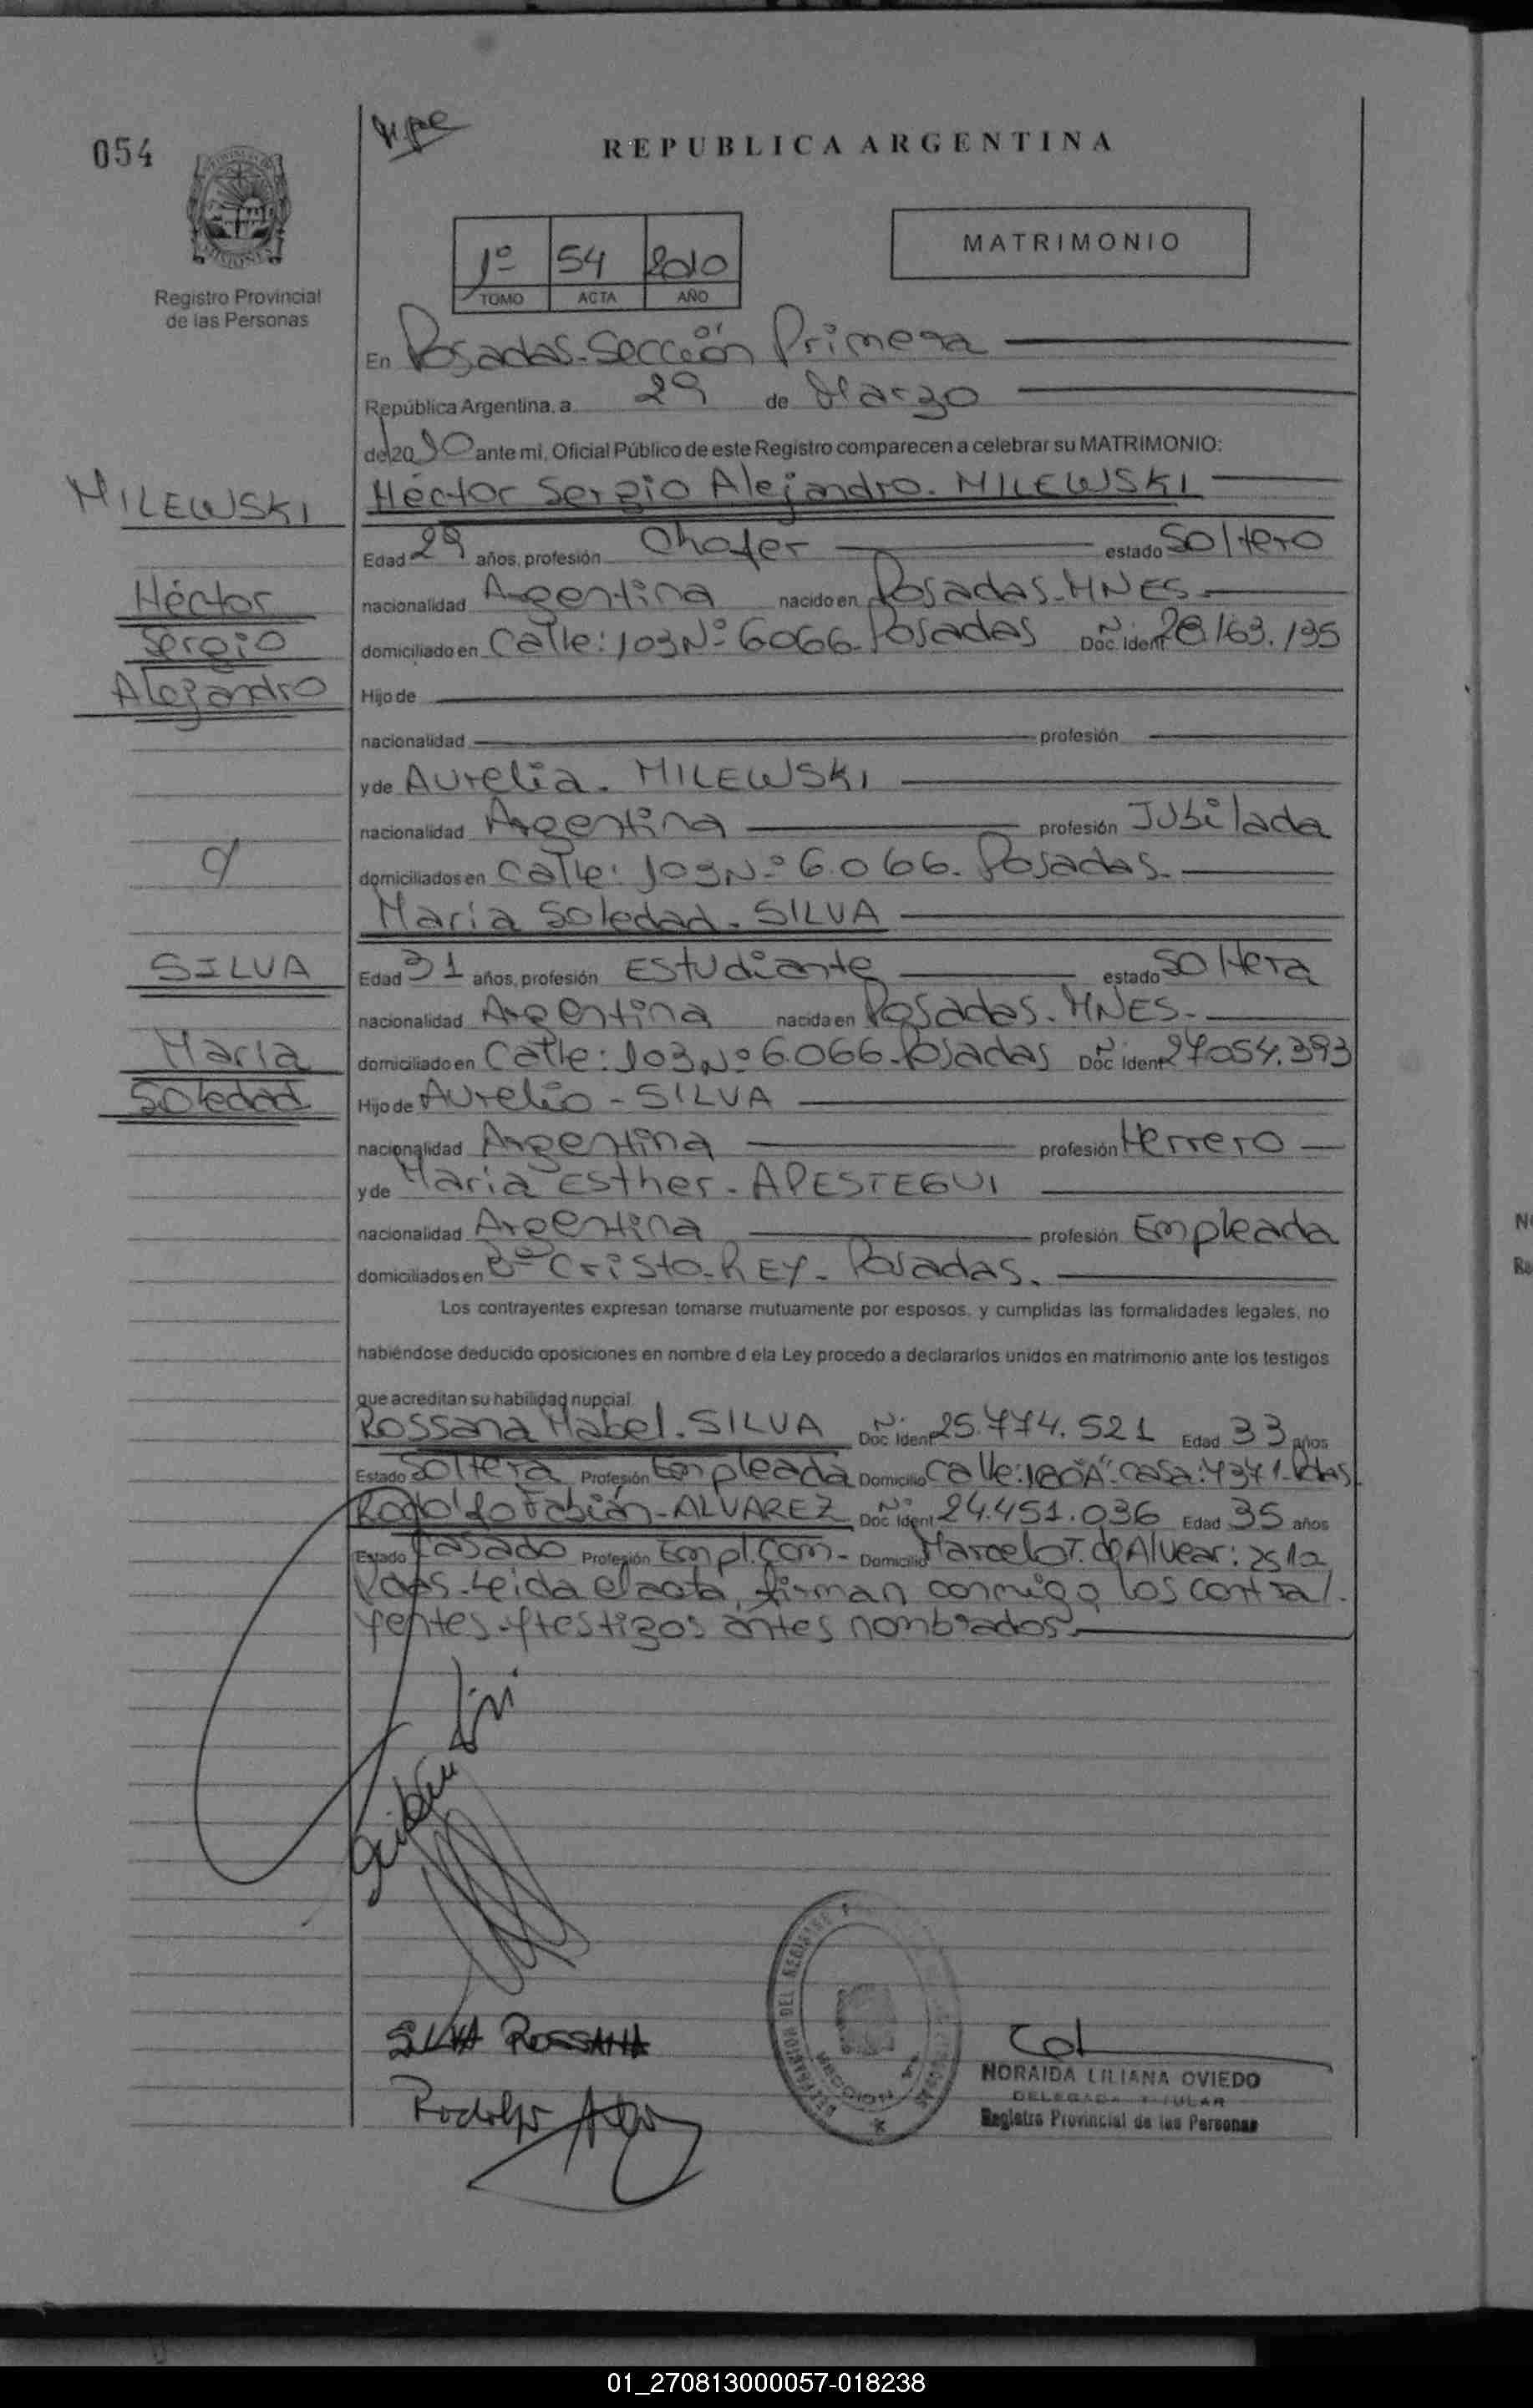 054
REPUBLICA ARGENTINA
MATRIMONIO
1º 54 2010
TOMO ACTA AÑO
Registro Provincial
de las Personas
En Posadas-Sección Primera
República Argentina, a 29 de Marzo
de 2010 ante mi, Oficial Público de este Registro comparecen a celebrar su MATRIMONIO:
MILEWSKI
Héctor Sergio Alejandro. MILEWSKI
Edad 29 años, profesión Chofer estado Soltero
Héctor
nacionalidad Argentina nacido en Posadas-MNES
Sergio
domiciliado en Calle: 103 Nº 6066-Posadas Doc. Ident Nº 28.163.135
Alejandro
Hijo de
nacionalidad profesión
y de Aurelia. MILEWSKI
nacionalidad Argentina profesión Jubilada
domiciliados en Calle: 103 Nº 6.066. Posadas.
María Soledad. SILVA
SILVA
Edad 31 años, profesión Estudiante estado Soltera
nacionalidad Argentina nacida en Posadas. MNES.
María
domiciliado en Calle: 103 Nº 6.066-Posadas Doc. Ident Nº 27.054.393
Soledad
Hijo de Aurelio - SILVA
nacionalidad Argentina profesión Herrero
y de María Esther - APESTEGUI
nacionalidad Argentina profesión Empleada
domiciliados en Bº Cristo-Rey-Posadas.
Los contrayentes expresan tomarse mutuamente por esposos, y cumplidas las formalidades legales, no
habiéndose deducido oposiciones en nombre d ela Ley procedo a declararlos unidos en matrimonio ante los testigos
que acreditan su habilidad nupcial
Rossana Mabel. SILVA Doc Ident Nº 25.774.521 Edad 33 años
Estado Soltera Profesión Empleada Domicilio Calle: 180"A" Casa: 4371-Pdas
Rodolfo Fabián-ALVAREZ Doc Ident Nº 24.451.036 Edad 35 años
Estado Casado Profesión Empl. Com- Domicilio Marcelo T. de Alvear:
Pdas-Leida el acta, firman conmigo los contra/.
yentes-ytestigos antes nombrados.
SILVA ROSSANA
Rodolfo
NORAIDA LILIANA OVIEDO
DELEGADA TITULAR
Registro Provincial de las Personas
01_270813000057-018238